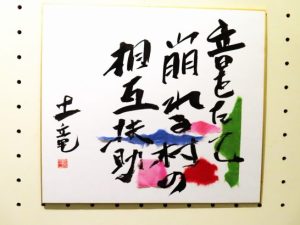 音もたてず
崩れる村の
相互扶助
土竜